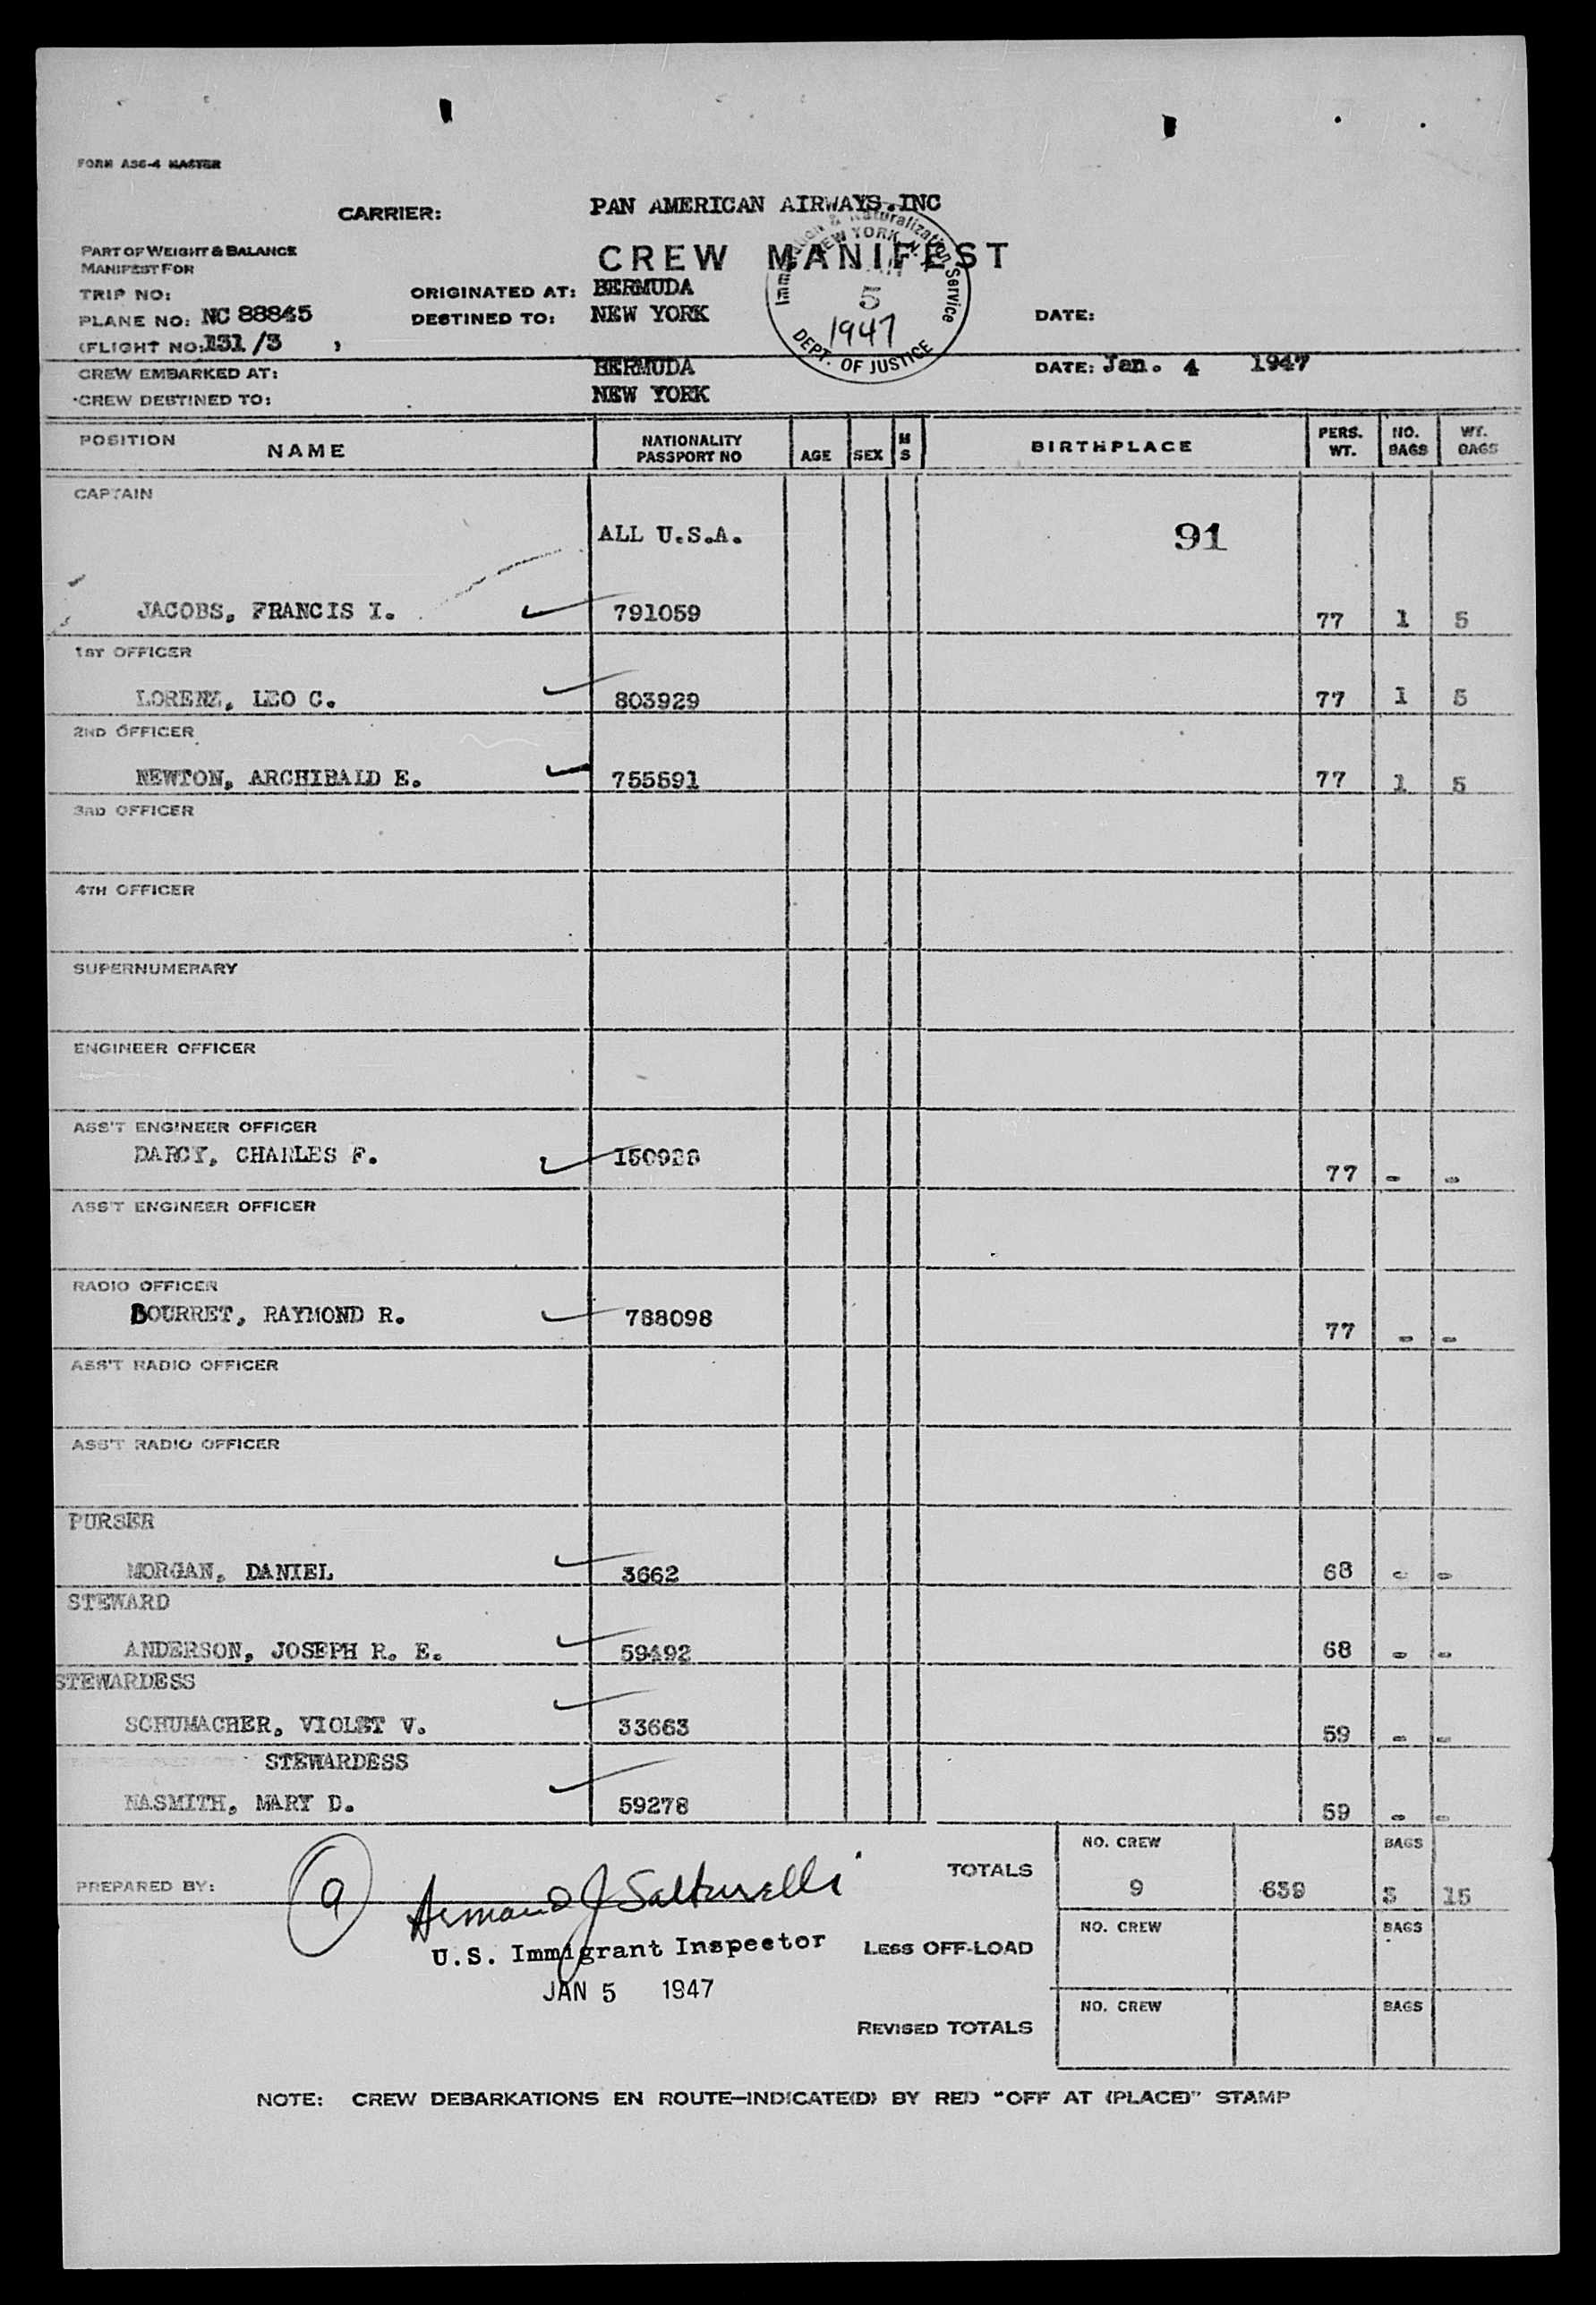 FORM ASG-4 MASTER
CARRIER: PAN AMERICAN AIRWAYS.INC
PART OF WEIGHT & BALANCE
MANIFEST FOR
CREW MANIFEST
TRIP NO:
ORIGINATED AT: BERMUDA
PLANE NO: NC 88845
DESTINED TO: NEW YORK
DATE:
(FLIGHT NO: 131 /3 )
Naturalization Service
NEW YORK, N.Y.
5
1947
DEPT. OF JUSTICE
CREW EMBARKED AT: BERMUDA
DATE: Jan. 4 1947
CREW DESTINED TO: NEW YORK
POSITION NAME NATIONALITY PASSPORT NO AGE SEX M S BIRTHPLACE PERS. WT. NO. BAGS WT. BAGS
CAPTAIN
ALL U.S.A. 91
JACOBS, FRANCIS I. 791059 77 1 5
1ST OFFICER
LORENZ, LEO C. 803929 77 1 5
2ND OFFICER
NEWTON, ARCHIBALD E. 755591 77 1 5
3RD OFFICER
4TH OFFICER
SUPERNUMERARY
ENGINEER OFFICER
ASS'T ENGINEER OFFICER
DARCY, CHARLES F. 77 - -
ASS'T ENGINEER OFFICER
RADIO OFFICER
BOURRET, RAYMOND R. 788098 77 - -
ASS'T RADIO OFFICER
ASS'T RADIO OFFICER
PURSER
MORGAN, DANIEL 3662 68 - -
STEWARD
ANDERSON, JOSEPH R. E. 59492 68 - -
STEWARDESS
SCHUMACHER, VIOLET V. 33663 59 - -
STEWARDESS
NASMITH, MARY D. 59278 59 - -
NO. CREW BAGS
TOTALS 9 639 3 15
PREPARED BY: 9 Armand J Salturelli
U.S. Immigrant Inspector
JAN 5 1947
NO. CREW BAGS
LESS OFF-LOAD
NO. CREW BAGS
REVISED TOTALS
NOTE: CREW DEBARKATIONS EN ROUTE—INDICATE(D) BY RED "OFF AT (PLACE)" STAMP